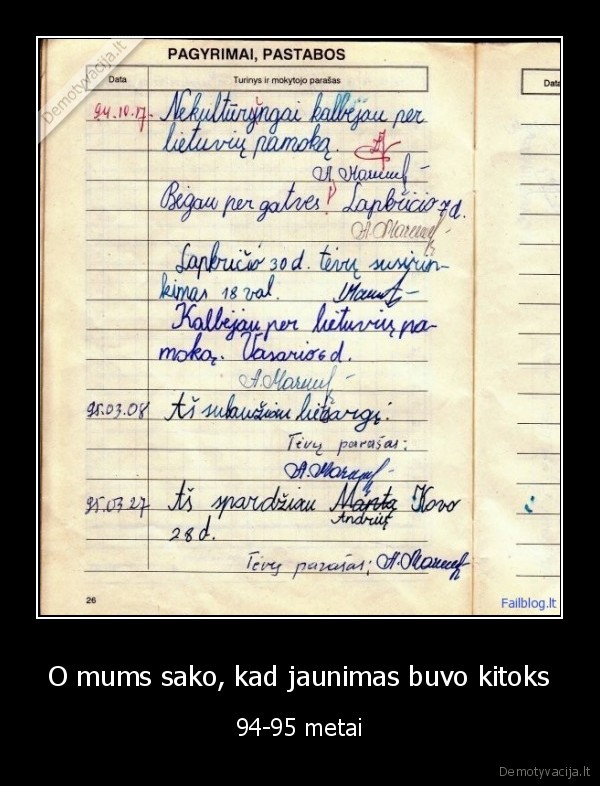 PAGYRIMAI, PASTABOS
Demotyvacija.lt
Data
Turinys ir mokytojo parašas
Data
94.10.17. Nekultūringai kalbėjau per
lietuvių pamoką.
Bėgau per gatvęs! Lapkričio 7 d.
Lapkričio 30 d. tėvų susirin-
kimas 18 val.
Kalbėjau per lietuvių pa-
moką. Vasario 6 d.
95.03.08 Aš sulaužiau
Tėvų parašas:
95.03.27 Aš spardžiau Mantą Kovo
Andrių
28 d.
Tėvų parašas:
26
Failblog.lt
O mums sako, kad jaunimas buvo kitoks
94-95 metai
Demotyvacija.lt